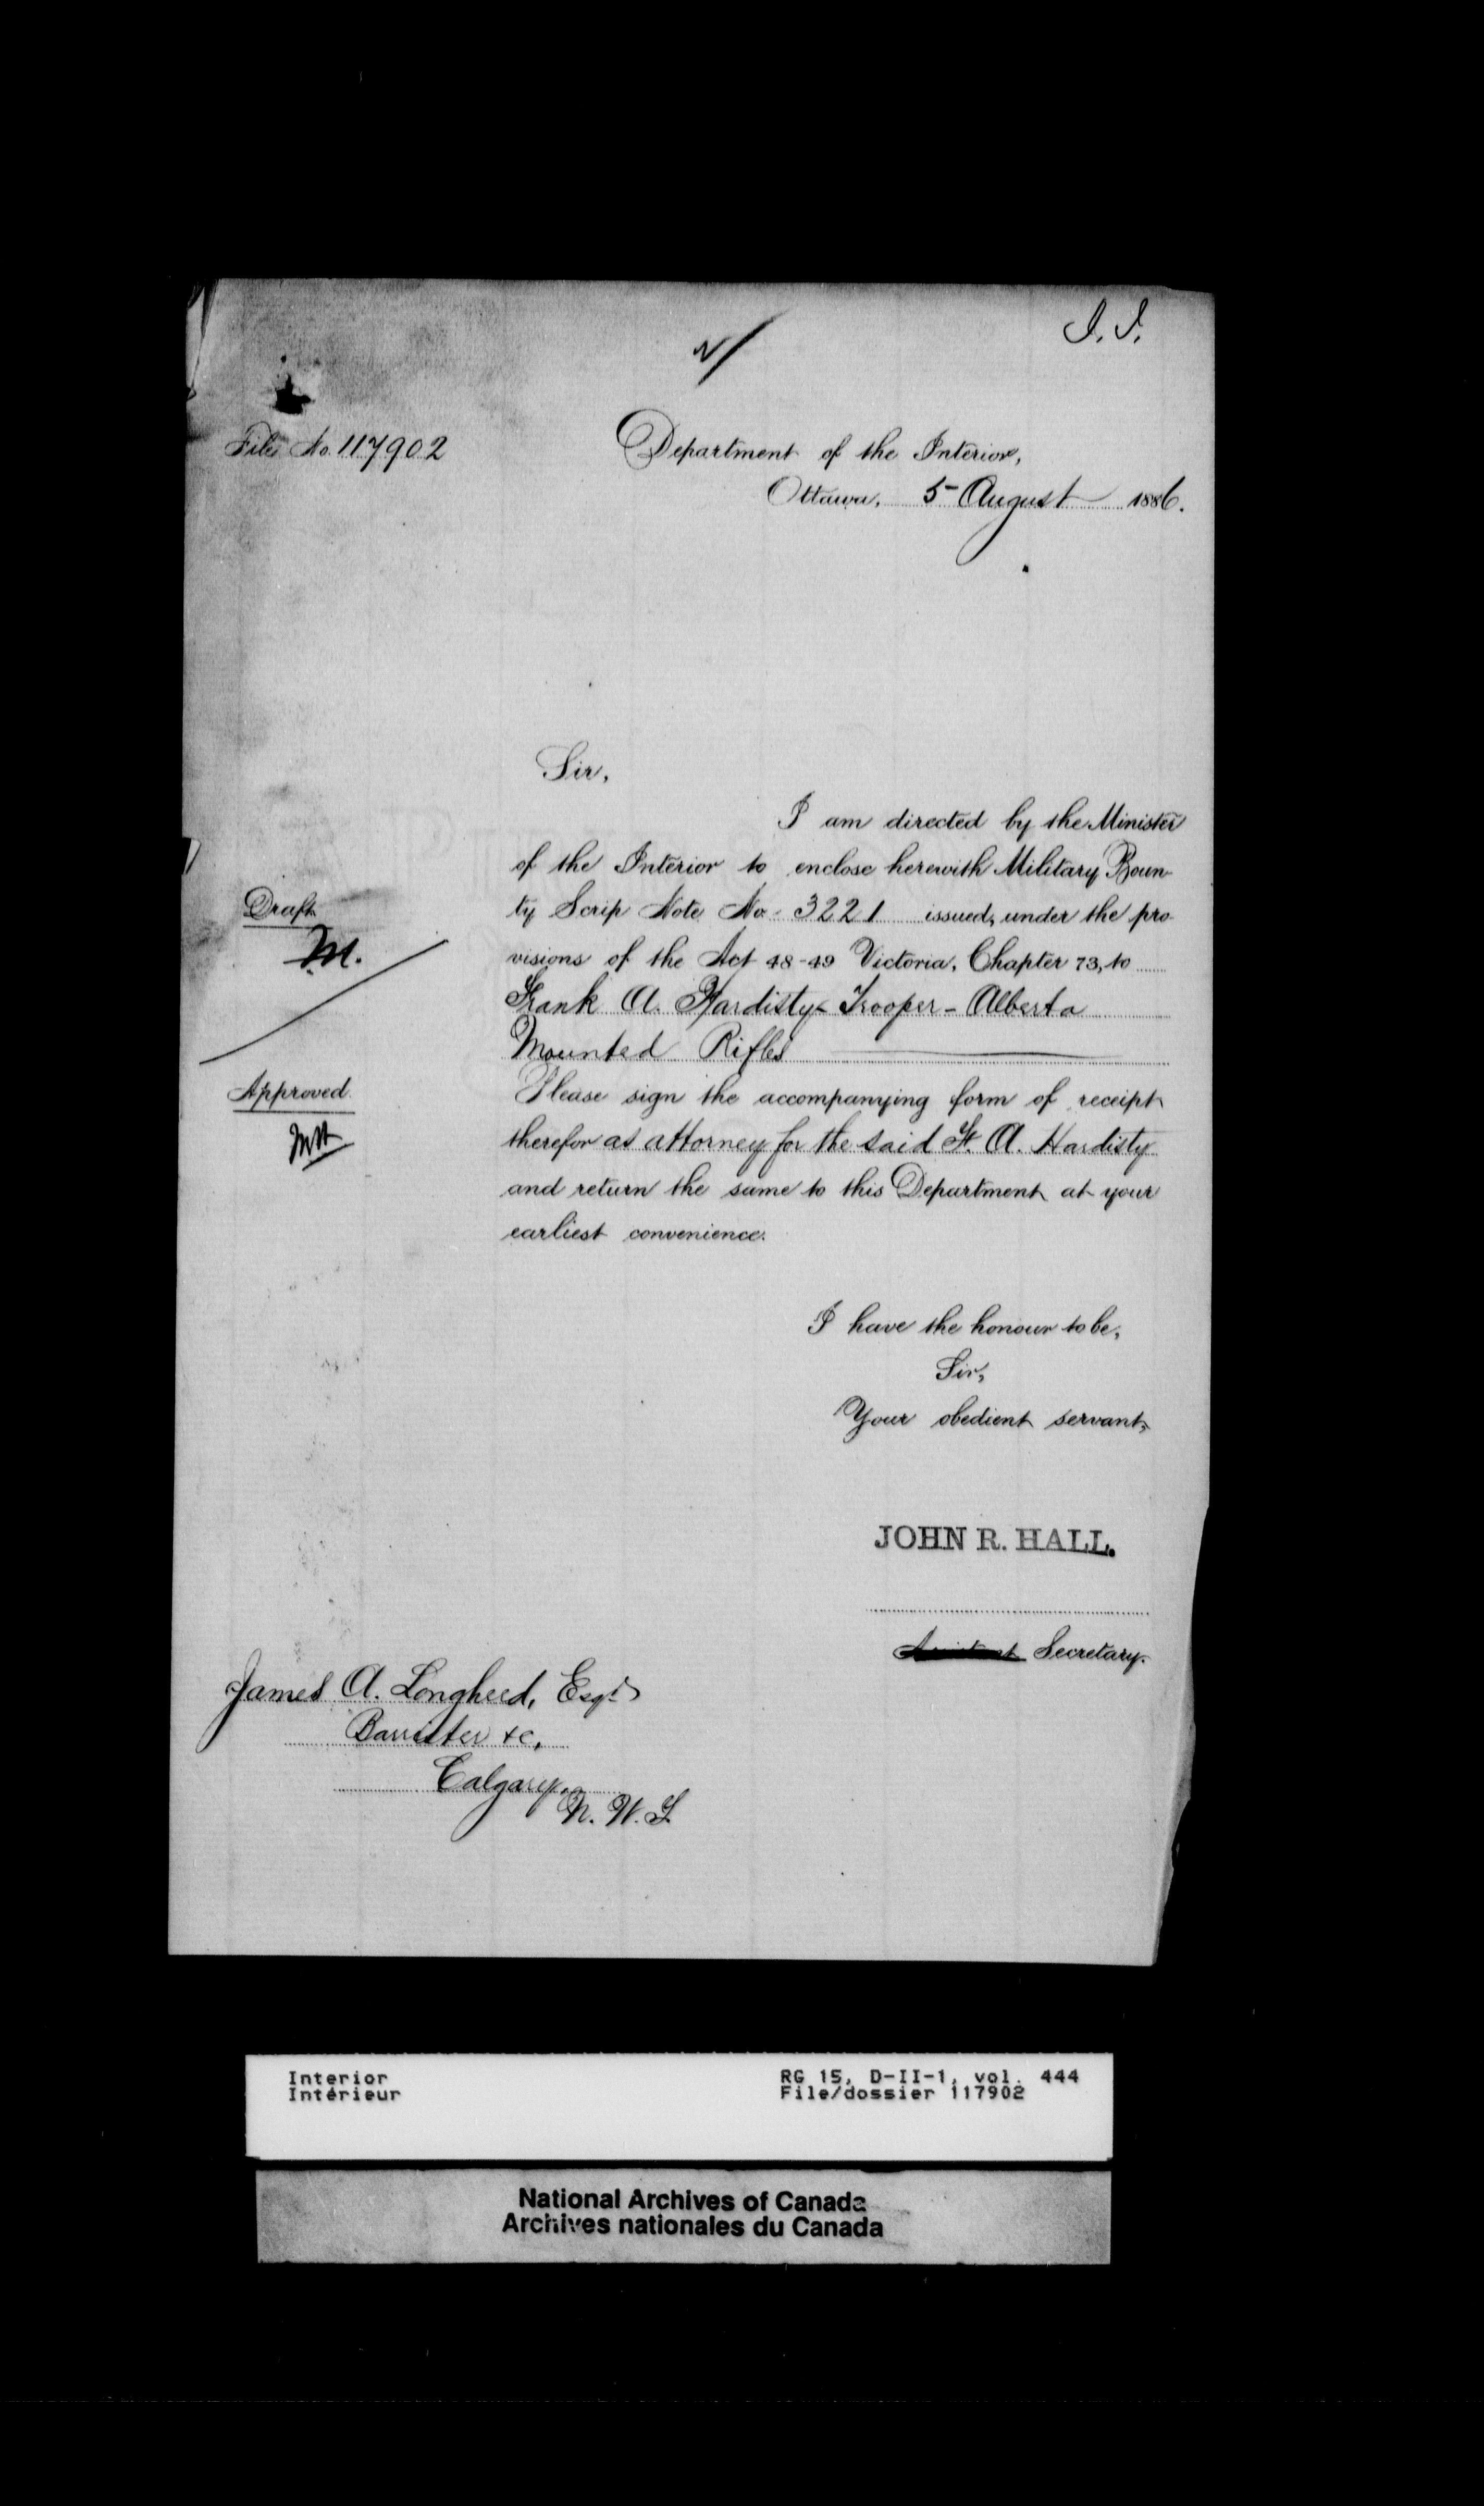 File No. 117902
Department of the Interior,
Ottawa, 5 August 1886.
Sir,
I am directed by the Minister
of the Interior to enclose herewith Military Boun-
ty Scrip Note No. 3221 issued, under the pro-
visions of the Act 48-49 Victoria, Chapter 73, to
Frank A. Hardisty - Trooper - Alberta
Mounted Rifles
Please sign the accompanying form of receipt
therefor as attorney for the said F. A. Hardisty
and return the same to this Department at your
earliest convenience.
Draft
M.
Approved
I have the honour to be,
Sir,
Your obedient servant,
JOHN R. HALL.
Secretary.
James A. Lougheed, Esqr
Barrister &c,
Calgary,
N. W. T.
Interior
Intérieur
RG 15, D-II-1, vol. 444
File/dossier 117902
National Archives of Canada
Archives nationales du Canada